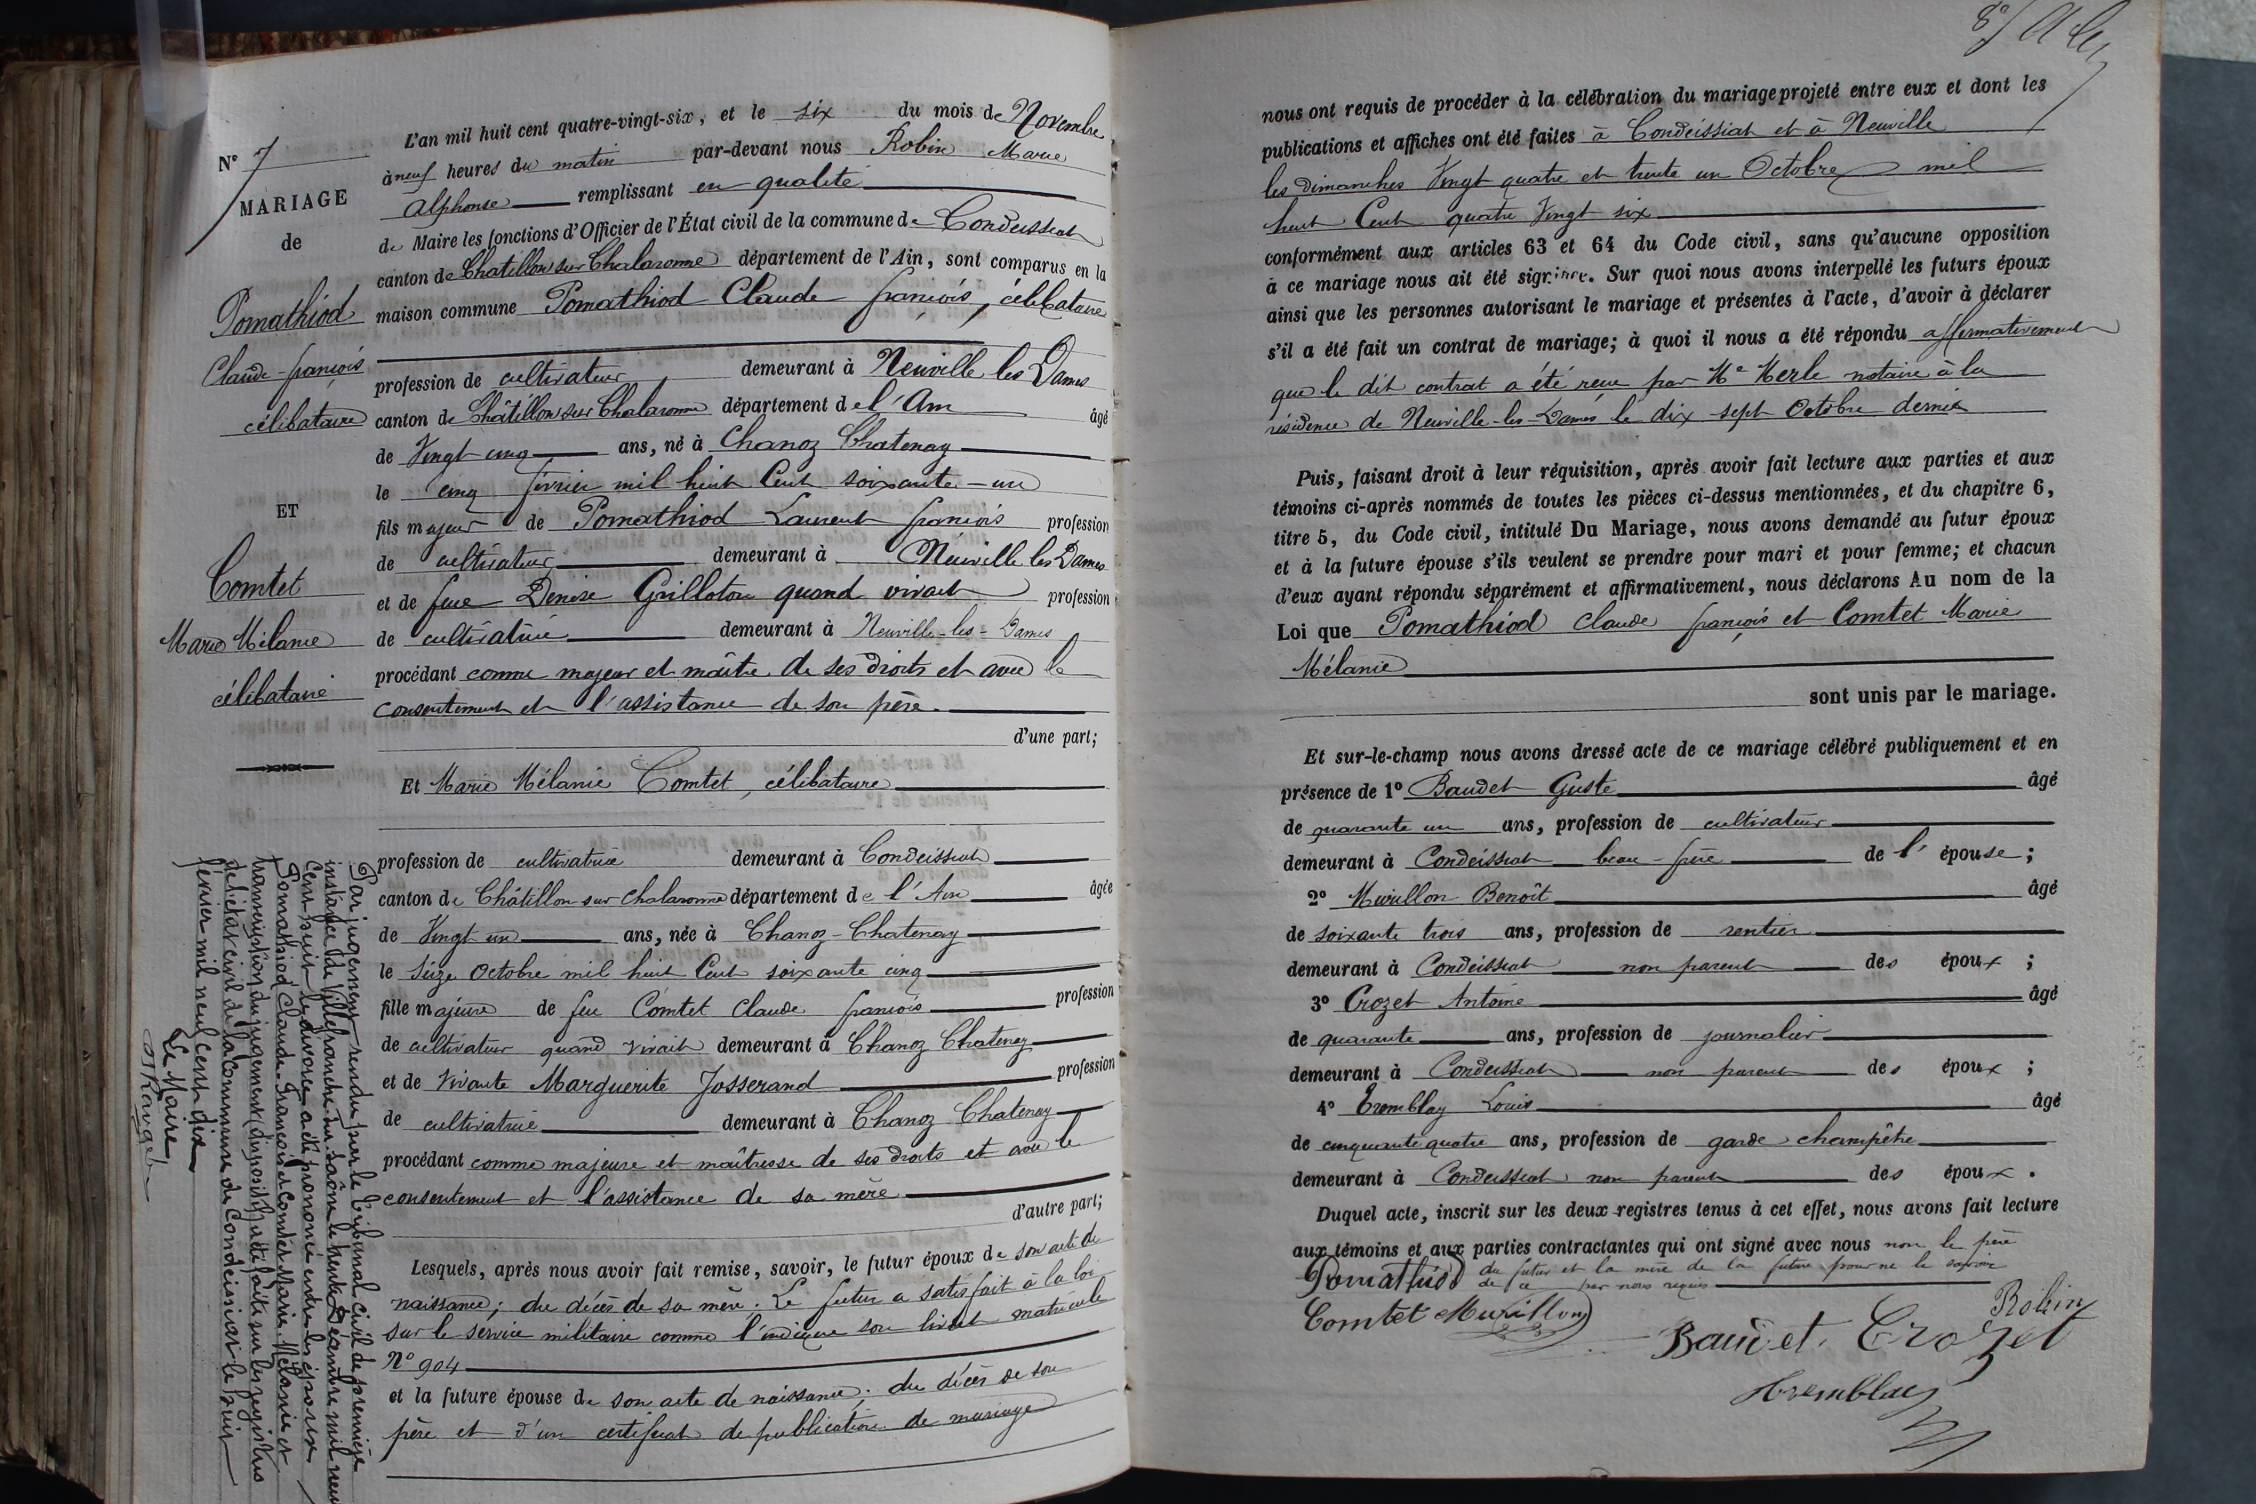 N° 7
MARIAGE
de
Pomathiod
Claude-françois
célibataire
ET
Comtet
Marie Mélanie
célibataire
L'an mil huit cent quatre-vingt-six, et le six du mois de Novembre
à neuf heures du matin par-devant nous Robin Marie
Alphonse remplissant en qualité
de Maire les fonctions d'Officier de l'État civil de la commune de Condeissiat
canton de Chatillon sur Chalaronne département de l'Ain, sont comparus en la
maison commune Pomathiod Claude françois, célibataire
profession de cultivateur demeurant à Neuville les Dames
canton de Châtillon sur Chalaronne département de l'Ain âgé
de Vingt cinq ans, né à Chanoz Chatenay
le cinq février mil huit Cent soixante-un
fils majeur de Pomathiod Laurent françois profession
de cultivateur demeurant à Neuville les Dames
et de feue Denise Grilloton quand vivait profession
de cultivatrice demeurant à Neuville-les-Dames
procédant comme majeur et maître de ses droits et avec le
consentement et l'assistance de son père.
d'une part;
Et Marie Mélanie Comtet, célibataire
profession de cultivatrice demeurant à Condeissiat
canton de Châtillon sur Chalaronne département de l'Ain âgée
de Vingt un ans, née à Chanoz-Chatenay
le Seize Octobre mil huit Cent soixante cinq
fille majeure de feu Comtet Claude françois profession
de cultivateur quand vivait demeurant à Chanoz Chatenay
et de vivante Marguerite Josserand profession
de cultivatrice demeurant à Chanoz Chatenay
procédant comme majeure et maîtresse de ses droits et avec le
consentement et l'assistance de sa mère
d'autre part;
Lesquels, après nous avoir fait remise, savoir, le futur époux de son acte de
naissance; du décès de sa mère. Le futur a satisfait à la loi
sur le service militaire comme l'indique son livret matricule
N° 904
et la future épouse de son acte de naissance; du décès de son
père et d'un certificat de publication de mariage
Par jugement rendu par le tribunal civil de première
instance de Villefranche-sur-Saône le trente Décembre mil neuf
cent huit le divorce a été prononcé entre les époux
Pomathiod Claude-François et Comtet Marie Mélanie et
transcription du jugement (dispositif) a été faite sur les registres
de l'état civil de la commune de Condeissiat le huit
février mil neuf cent dix
Le Maire
nous ont requis de procéder à la célébration du mariage projeté entre eux et dont les
publications et affiches ont été faites à Condeissiat et à Neuville
les dimanches Vingt quatre et trente un Octobre mil
huit Cent quatre Vingt six
conformément aux articles 63 et 64 du Code civil, sans qu'aucune opposition
à ce mariage nous ait été signifiée. Sur quoi nous avons interpellé les futurs époux
ainsi que les personnes autorisant le mariage et présentes à l'acte, d'avoir à déclarer
s'il a été fait un contrat de mariage; à quoi il nous a été répondu affirmativement
que le dit contrat a été reçu par Me Merle notaire à la
résidence de Neuville-les-Dames le dix-sept Octobre dernier
Puis, faisant droit à leur réquisition, après avoir fait lecture aux parties et aux
témoins ci-après nommés de toutes les pièces ci-dessus mentionnées, et du chapitre 6,
titre 5, du Code civil, intitulé Du Mariage, nous avons demandé au futur époux
et à la future épouse s'ils veulent se prendre pour mari et pour femme; et chacun
d'eux ayant répondu séparément et affirmativement, nous déclarons Au nom de la
Loi que Pomathiod Claude françois et Comtet Marie
Mélanie
sont unis par le mariage.
Et sur-le-champ nous avons dressé acte de ce mariage célébré publiquement et en
présence de 1° Baudet Guste âgé
de quarante un ans, profession de cultivateur
demeurant à Condeissiat beau-frère de l'épouse;
2° Murillon Benoît âgé
de soixante trois ans, profession de rentier
demeurant à Condeissiat non parent des époux;
3° Crozet Antoine âgé
de quarante ans, profession de journalier
demeurant à Condeissiat non parent des époux;
4° Tremblay Louis âgé
de cinquante quatre ans, profession de garde champêtre
demeurant à Condeissiat non parent des époux.
Duquel acte, inscrit sur les deux registres tenus à cet effet, nous avons fait lecture
aux témoins et aux parties contractantes qui ont signé avec nous non le père
du futur et la mère de la future pour ne le savoir
de ce par nous requis
Pomathiod
Robin
Comtet Murillon
Baudet. Crozet
Tremblay